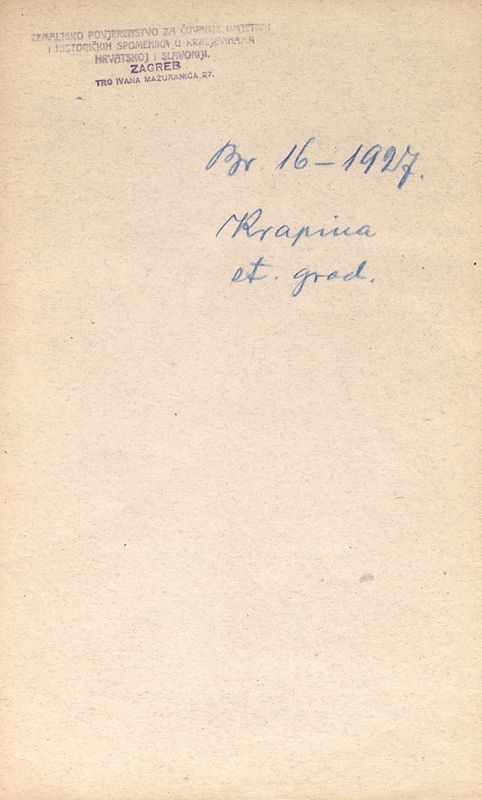 ZEMALJSKO POVJERENSTVO ZA ČUVANJE UMJETNIH
I HISTORIČKIH SPOMENIKA U KRALJEVINAMA
HRVATSKOJ I SLAVONIJI.
ZAGREB
TRG IVANA MAŽURANIĆA 27.
Br. 16-1927.
Krapina
st. grad.